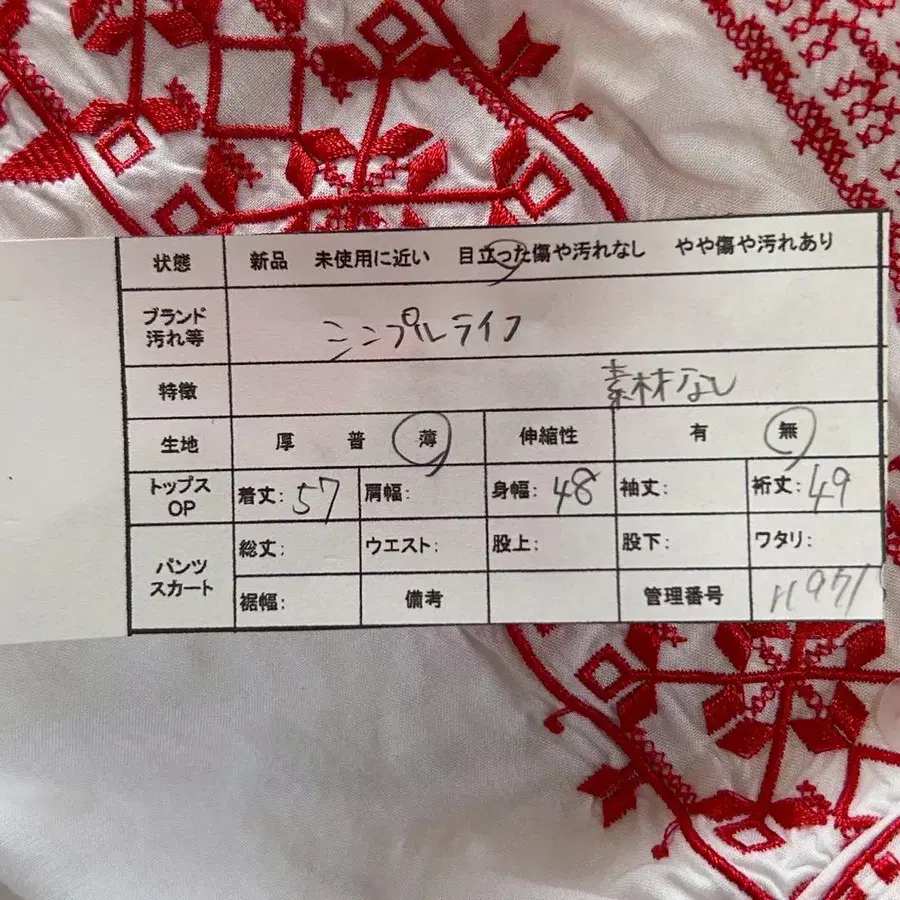 状態 新品 未使用に近い 目立った傷や汚れなし やや傷や汚れあり
ブランド
汚れ等 シンプルライフ
特徴 素材なし
生地 厚 普 薄 伸縮性 有 無
トップス
OP 着丈: 57 肩幅: 身幅: 48 袖丈: 裄丈: 49
パンツ
スカート 総丈: ウエスト: 股上: 股下: ワタリ:
裾幅: 備考 管理番号